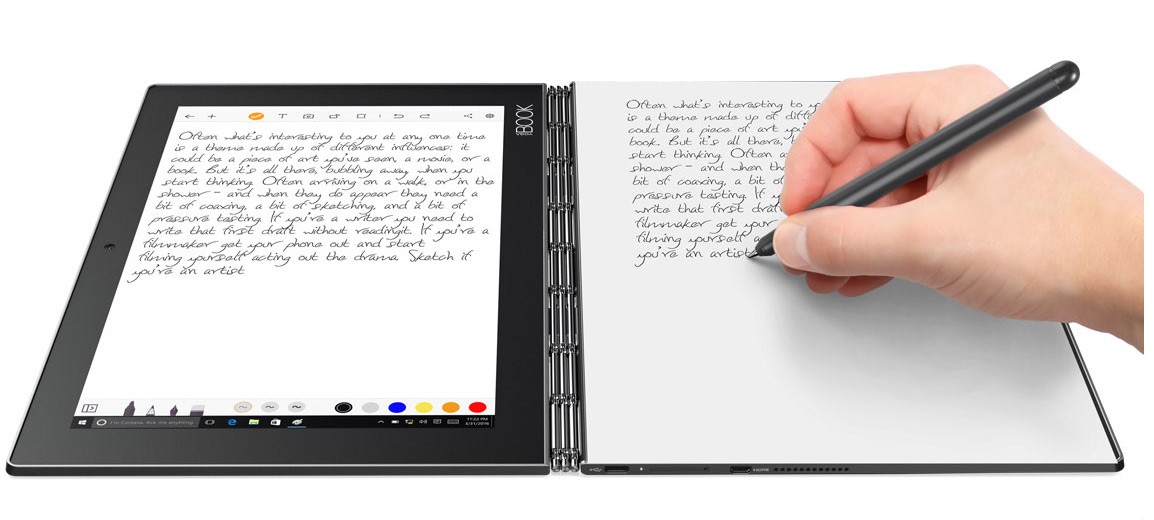 BOOK
Often what's interesting to you at any one time
is a theme made up of different influences: it
could be a piece of art you've seen, a movie, or a
book. But it's all there, bubbling away, when you
start thinking. Often arriving on a walk, or in the
shower - and when they do appear they need a
bit of coaxing, a bit of sketching, and a bit of
pressure testing. If you're a writer you need to
write that first draft without readingit. If you're a
filmmaker get your phone out and start
filming yourself acting out the drama. Sketch if
you're an artist
I'm Cortana. Ask me anything
11:22 PM
Often what's interesting to yo
is a theme made up of diffe
could be a piece of art you
book. But it's all there,
start thinking. Often a
shower - and when th
bit of coaxing, a bit of
pressure testing. If y
write that first draft
filmmaker get your
filming yourself a
you're an artist
HDMI